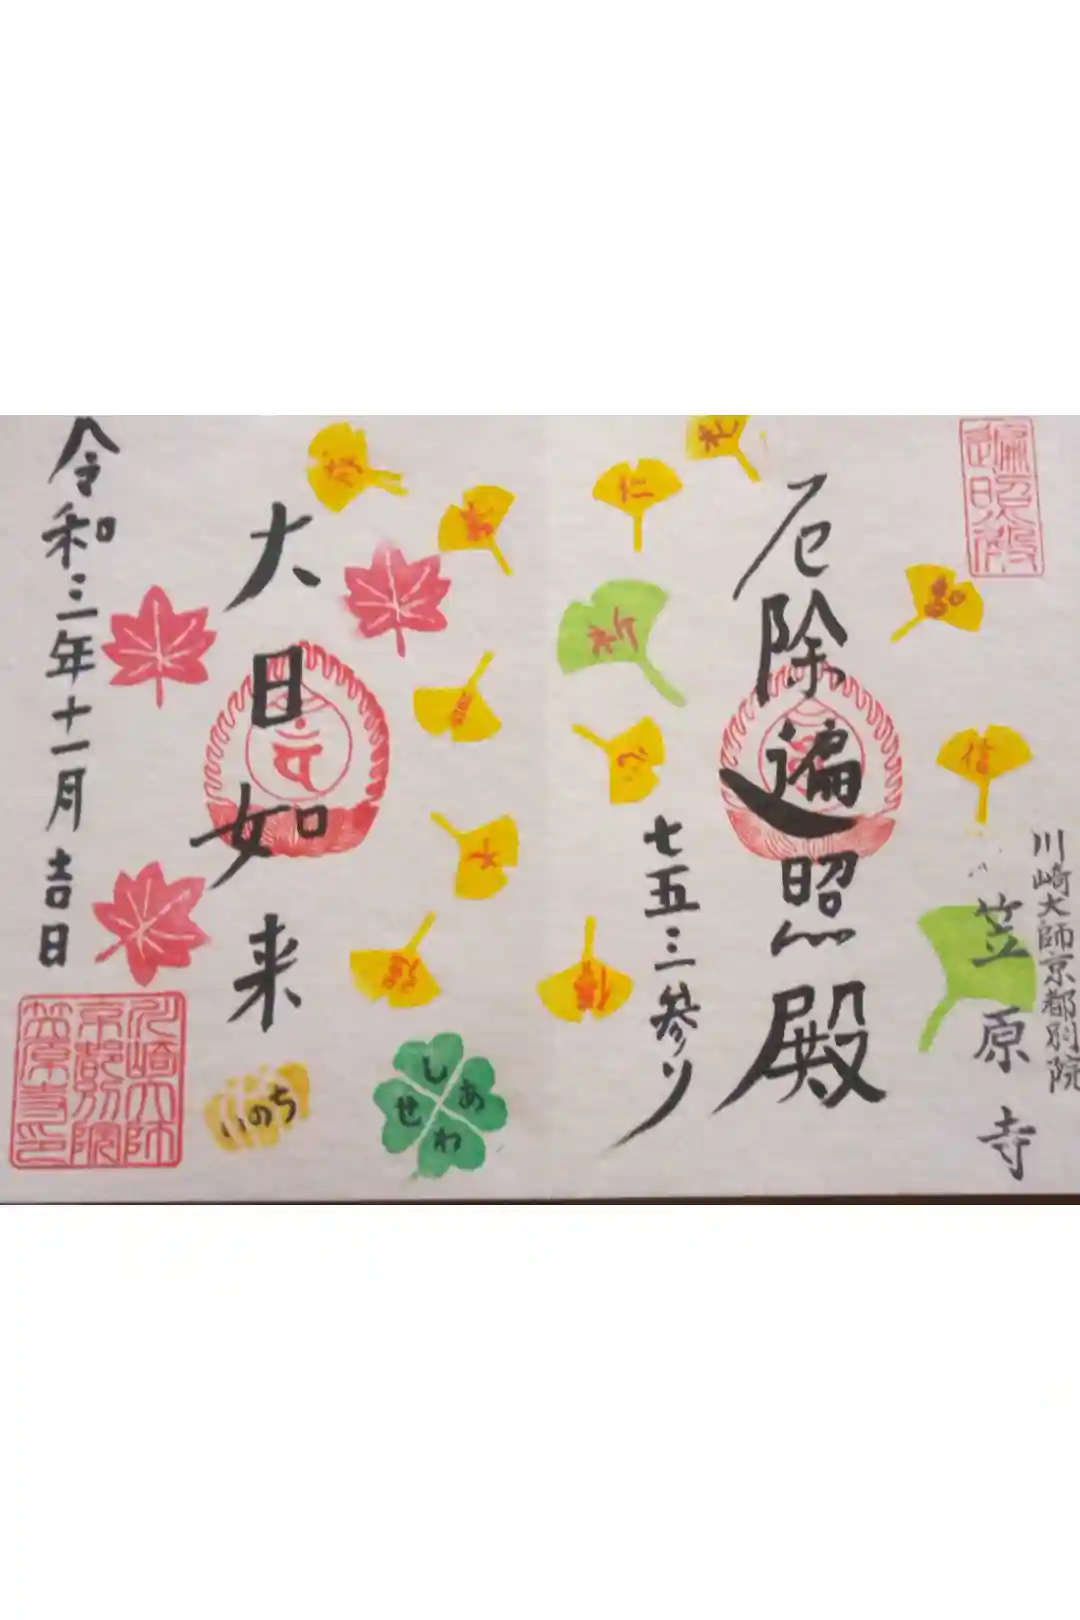 遍照殿
川崎大師京都別院
笠原寺
厄除遍照殿
七五三参り
礼
仁
智
信
祈
心
大日如来
しあわせ
いのち
令和三年十一月吉日
川崎大師
京都別院
笠原寺印